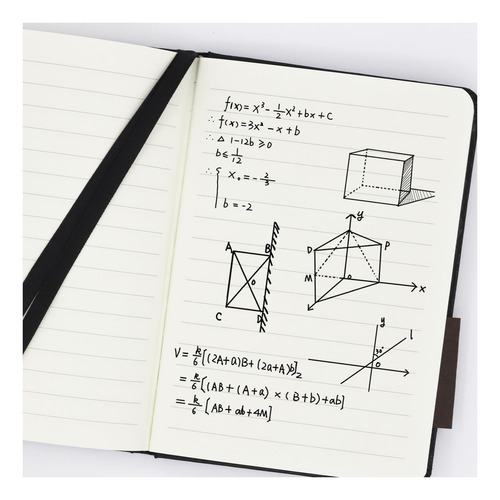 f(x) = x³ - 1/2 x² + bx + c
∴ f(x) = 3x² - x + b
∴ Δ 1-12b ≥ 0
b ≤ 1/12
∴ { x₀ = - 2/3
b = -2
y
D
P
M
o
x
A
B
o
C
D
y
l
30°
o
V = k/6 [(2A+a)B+(2a+A)b]₂
= k/6 [(AB+(A+a) × (B+b)+ab]
= k/6 [AB+ab+4M]